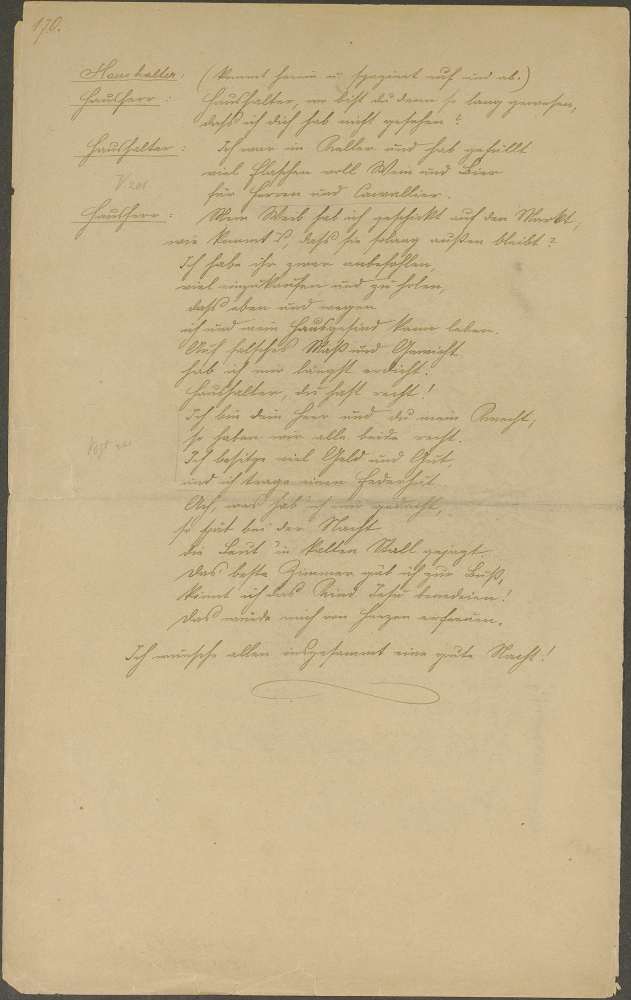 170.
Haushalter: (kommt herein u. spaziert auf und ab.)
Hausherr: Haushalter, wo bist du denn so lang gewesen,
daß ich dich hab nicht gesehen?
Haushalter: Ich war im Keller und hab gefüllt
viel Flaschen voll Wein und Bier
V 201
für Herren und Cavallier.
Hausherr: Mein Weib hab ich geschickt auf den Markt,
wie kommt's, daß sie solang außen bleibt?
Ich habe ihr zwar anbefohlen,
viel einzukaufen und zu holen,
daß eben und wegen
ich und mein Hausgesind kann leben.
Auch falsches Maß und Gewicht
hab ich mir längst erdicht.
Haushalter, du hast recht!
Ich bin dein Herr und du mein Knecht,
so haben wir alle beide recht.
Ich besitze viel Geld und Gut,
und ich trage einen Federhut.
Ach, was hab ich mir gedacht,
so spät bei der Nacht
die Leut in kalten Stall gejagt.
Das beste Zimmer gäb ich zur Buß,
könnt ich das Kind Jesu benedeien!
Das würde mich von Herzen erfreuen.
Ich wünsche allen insgesammt eine gute Nacht!